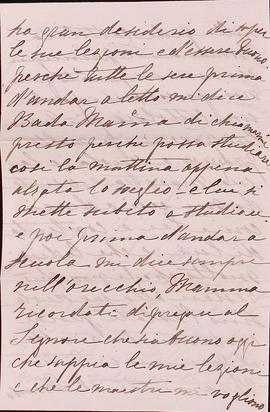 ha gran desiderio di saper
le sue lezioni e d'essere buono
perché tutte le sere prima
d'andar a letto mi dice
Bada Mamma di chiamarmi
presto perché possa studiare
così la mattina appena
alzata lo sveglio e lui si
mette subito a studiare
e poi prima d'andar a
scuola mi dice sempre
nell'orecchio, Mamma
ricordati di pregar il
Signore che sia buono oggi
che sappia le mie lezioni
e che le maestre me vogliono